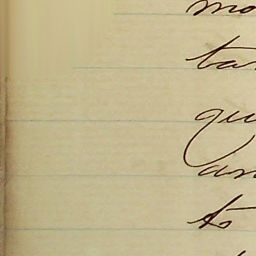 mo
ta
qu
an
to